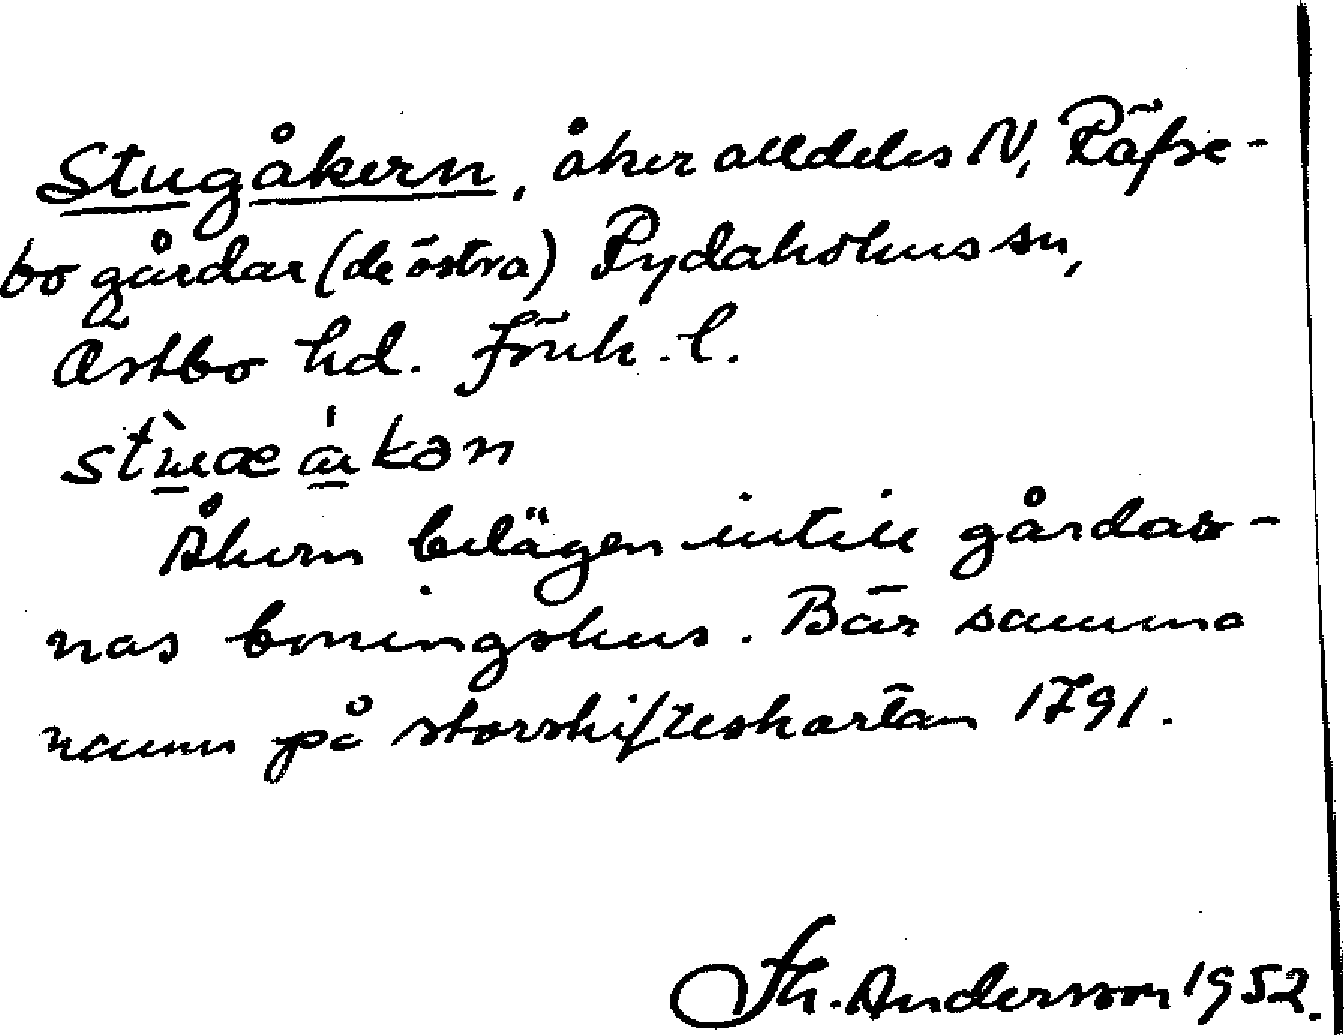 Stugåkern, åker alldeles N, Räfse-
bo gårdar (de östra) Rydaholms sn,
Östbo hd. Jönk. l.
Åkern belägen intill gårdar-
nas boningshus. Bär samma
namn på storskifteskartan 1791.
Th. Andersson 1952.